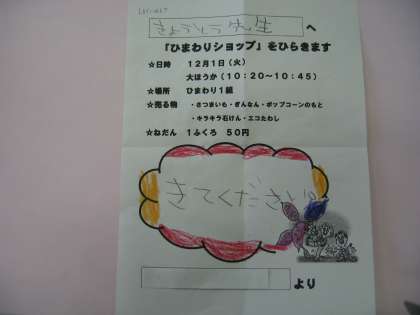 きょうとう先生 へ
「ひまわりショップ」をひらきます
☆日時 12月1日(火)
大ほうか(10:20～10:45)
☆場所 ひまわり1組
☆売る物 ・さつまいも・ぎんなん・ポップコーンのもと
・キラキラ石けん・エコたわし
☆ねだん 1ふくろ 50円
きてください。
より